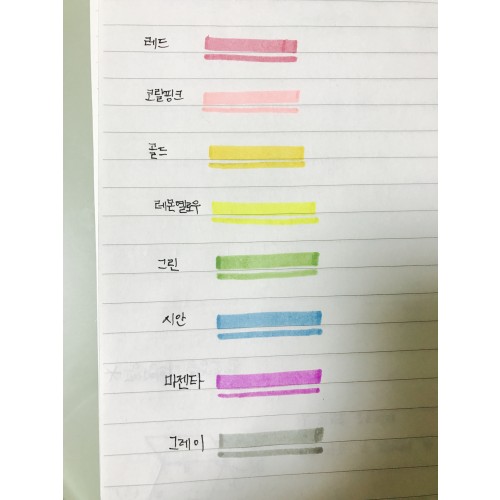 레드
코랄핑크
골드
레몬옐로우
그린
시안
마젠타
그레이